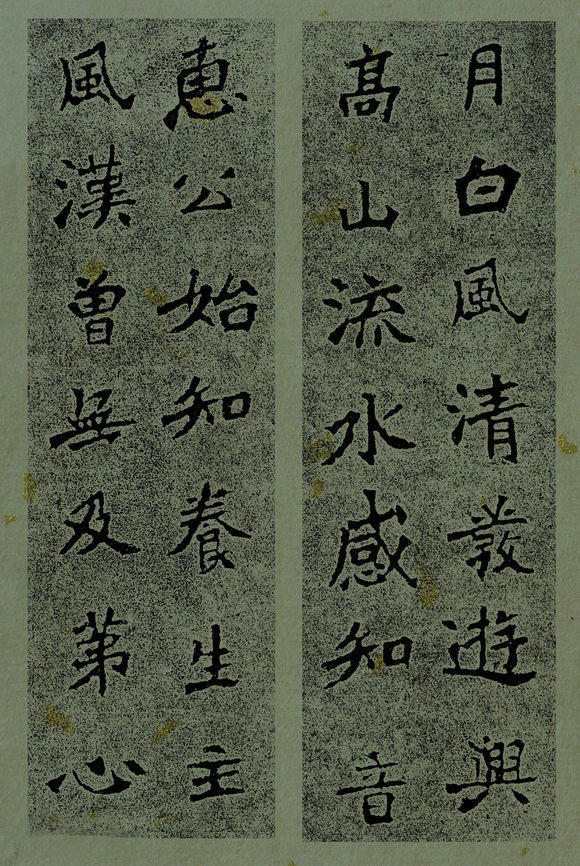 月白風清發遊興
高山流水感知音
惠公始知養生主
風漢曾無及第心